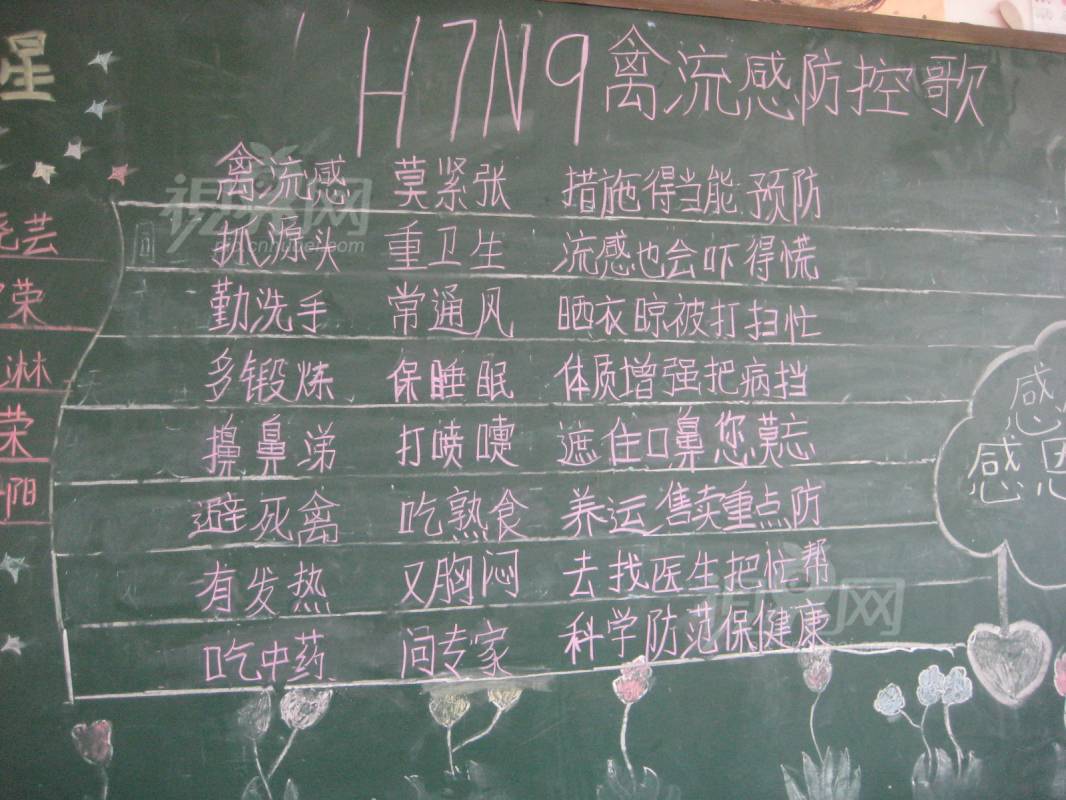 星
H7N9禽流感防控歌
禽流感 莫紧张 措施得当能预防
抓源头 重卫生 流感也会吓得慌
勤洗手 常通风 晒衣晾被打扫忙
多锻炼 保睡眠 体质增强把病挡
擤鼻涕 打喷嚏 遮住口鼻您莫忘
避死禽 吃熟食 养运售卖重点防
有发热 又胸闷 去找医生把忙帮
吃中药 问专家 科学防范保健康
芸
荣
淋
荣
阳
感
感恩